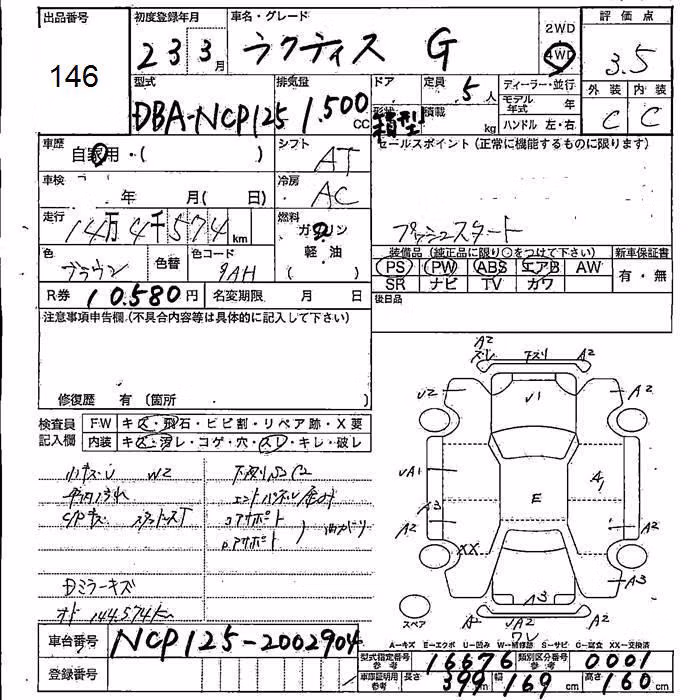 出品番号 初度登録年月 車名・グレード 評価点
146
23 3月 ラクティス G 2WD 4WD 3.5
型式 排気量 ドア 定員 ディーラー・並行 外装 内装
DBA-NCP125 1.500 CC 5人 モデル年式 年 C C
形状 箱型 積載 kg ハンドル 左・右
車歴 自家用・( ) シフト AT セールスポイント (正常に機能するものに限ります)
車検 年 月( 日) 冷房 AC
走行 14万4千574km 燃料 ガソリン プッシュスタート
色 ブラウン 色替 色コード 9AH 軽油 ( )
装備品 (純正品に限り○をつけて下さい) 新車保証書
PS PW ABS エアB AW 有・無
SR ナビ TV カワ
R券 10.580円 名変期限 月 日 後日品
注意事項申告欄 (不具合内容等は具体的に記入して下さい)
修復歴 有 (箇所 )
検査員記入欄 F・W キズ・飛石・ヒビ割・リペア跡・X要
内装 キズ・汚レ・コゲ・穴・スレ・キレ・破レ
小キズU W2
Dミラーキズ
オド 144.574km
コアサポート
A2 A2
U2 U1 A2
UA1 A1
A3 E
A2 A2
XX
A3 A3
A2 UA2 A2
スペア
A―キズ E―エクボ U―凹み W―補修跡 S―サビ C―腐食 XX―交換済
車台番号 NCP125-2002904
登録番号
型式指定番号 参考 16676 類別区分番号 参考 0001
車庫証明用 参考 長さ 399 幅 169 cm 高さ 160 cm